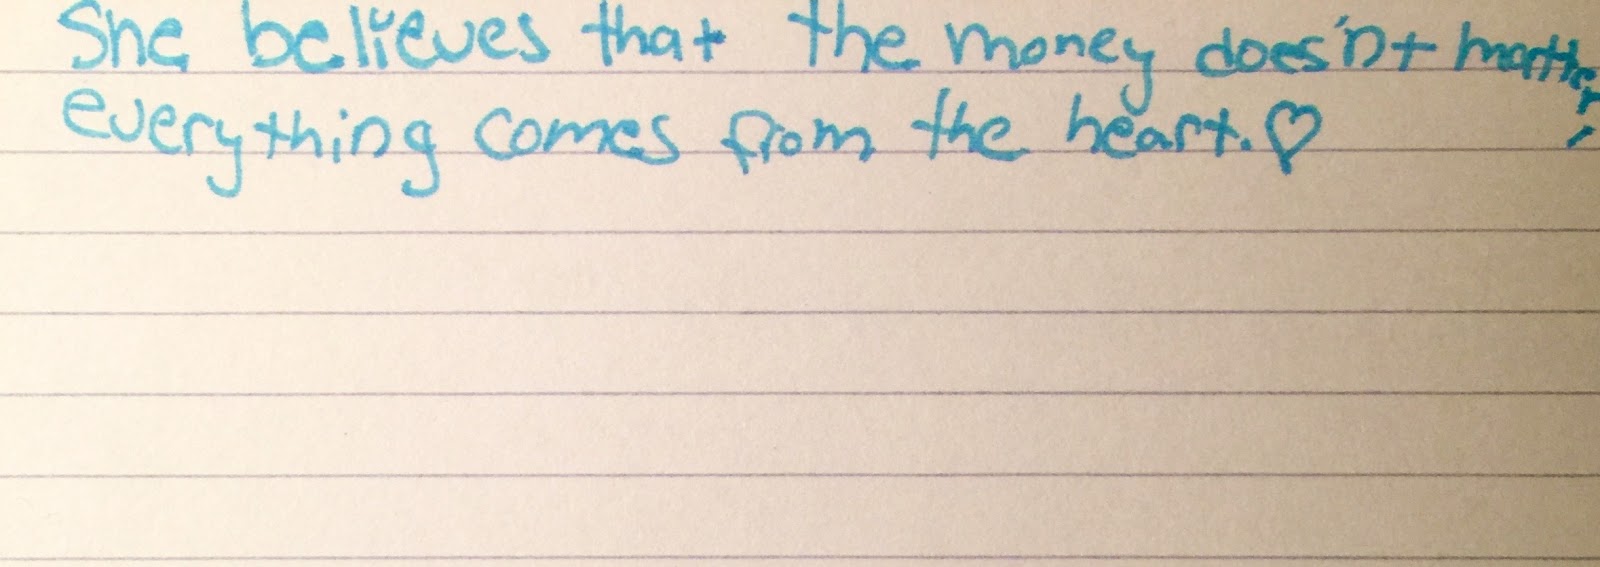 She believes that the money does'nt matter,
everything comes from the heart.♡